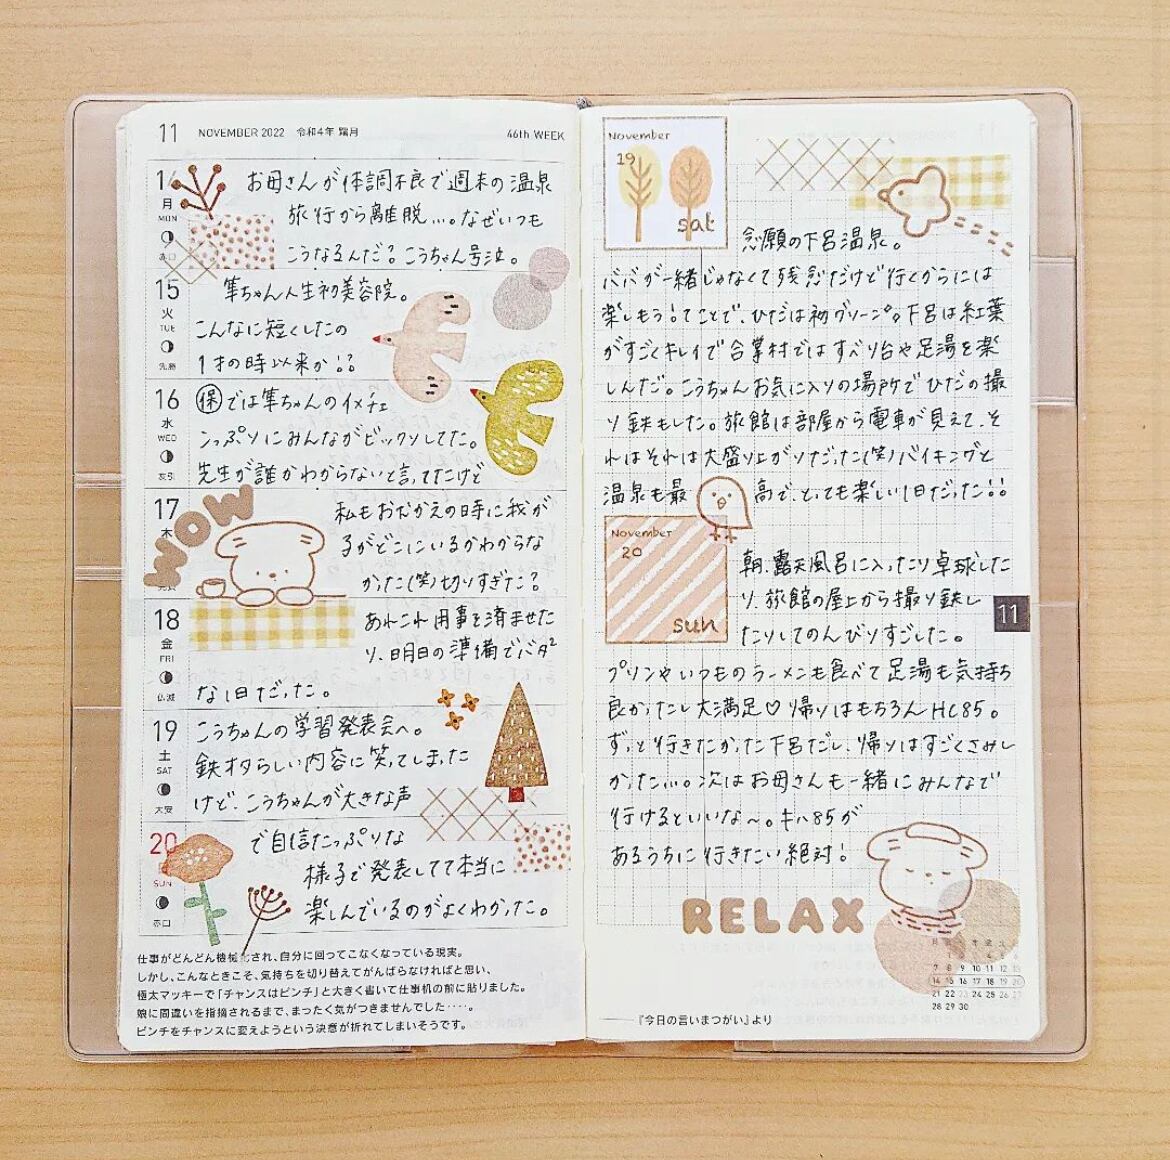 11 NOVEMBER 2022 令和4年 霜月 46th WEEK
14 月 MON 赤口
お母さんが体調不良で週末の温泉
旅行から離脱...。なぜいつも
こうなるんだ?こうちゃん号泣。
15 火 TUE 先勝
隼ちゃん人生初美容院。
こんなに短くしたの
1才の時以来か!?
16 水 WED 友引
㋭では隼ちゃんのイメチェ
ンっぷりにみんながビックリしてた。
先生が誰かわからないと言ってたけど
17 木
WOW
私もおむかえの時に我が
子がどこにいるかわからな
かった(笑)切りすぎた?
18 金 FRI 仏滅
あれこれ用事を済ませた
り、明日の準備でバタ²
な1日だった。
19 土 SAT 大安
こうちゃんの学習発表会へ。
鉄オタらしい内容に笑ってしまった
けど、こうちゃんが大きな声
20 SUN 赤口
で自信たっぷりな
様子で発表してて本当に
楽しんでいるのがよくわかった。
仕事がどんどん機械化され、自分に回ってこなくなっている現実。
しかし、こんなときこそ、気持ちを切り替えてがんばらなければと思い、
極太マッキーで「チャンスはピンチ」と大きく書いて仕事机の前に貼りました。
娘に間違いを指摘されるまで、まったく気がつきませんでした‥‥。
ピンチをチャンスに変えようという決意が折れてしまいそうです。
November
19
sat
念願の下呂温泉。
ババが一緒じゃなくて残念だけど行くからには
楽しもう!てことで、ひだは初グリーン。下呂は紅葉
がすごくキレイで合掌村ではすべり台や足湯を楽
しんだ。こうちゃんお気に入りの場所でひだの撮
り鉄もした。旅館は部屋から電車が見えて、そ
れはそれは大盛り上がりだった(笑)バイキングと
温泉も最高で、とっても楽しい1日だった!!
November
20
sun
朝、露天風呂に入ったり卓球した
り、旅館の屋上から撮り鉄し
たりしてのんびりすごした。
11
プリンやいつものラーメンも食べて足湯も気持ち
良かったし大満足♡帰りはもちろんHC85。
ずっと行きたかった下呂だし、帰りはすごくさみし
かった...。次はお母さんも一緒にみんなで
行けるといいな〜。キハ85が
あるうちに行きたい絶対!
RELAX
7 8 9 10 11 12 13
14 15 16 17 18 19 20
21 22 23 24 25 26 27
28 29 30
『今日の言いまつがい』より